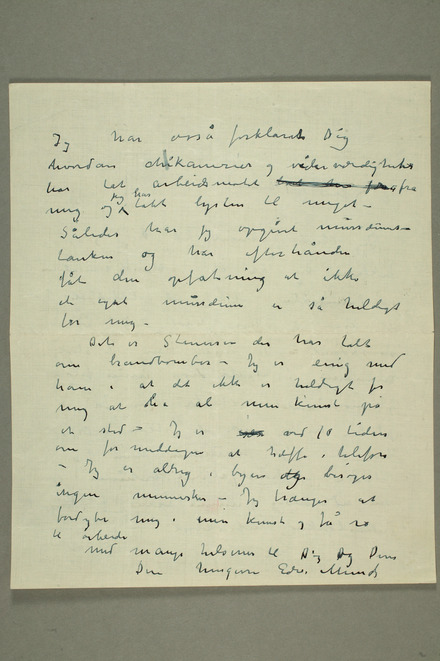 Jeg har også forklaret Dig
hvordan chikanerier og viderværdigheder
har tat arbeidsmodet fra
mig og jeg har tabt lysten til meget –
Således har jeg opgivet museums-
tanken og har efterhånden
fåt den opfatning at ikke
et eget museum er så heldigt
for mig –
Det er Stenersen der har talt
om brandbomber – Jeg er enig med
ham i at det ikke er heldigt for
mig at ha al min kunst på
et sted – Jeg er ved 10 tiden
om formiddagen at træffe i telefon
– Jeg er aldrig i byen og besøger
ingen mennesker – Jeg trænger at
fordybe mig i min kunst og få ro
til arbeide
Med mange hilsener til Dig og Dine
Din hengivne Edv. Munch